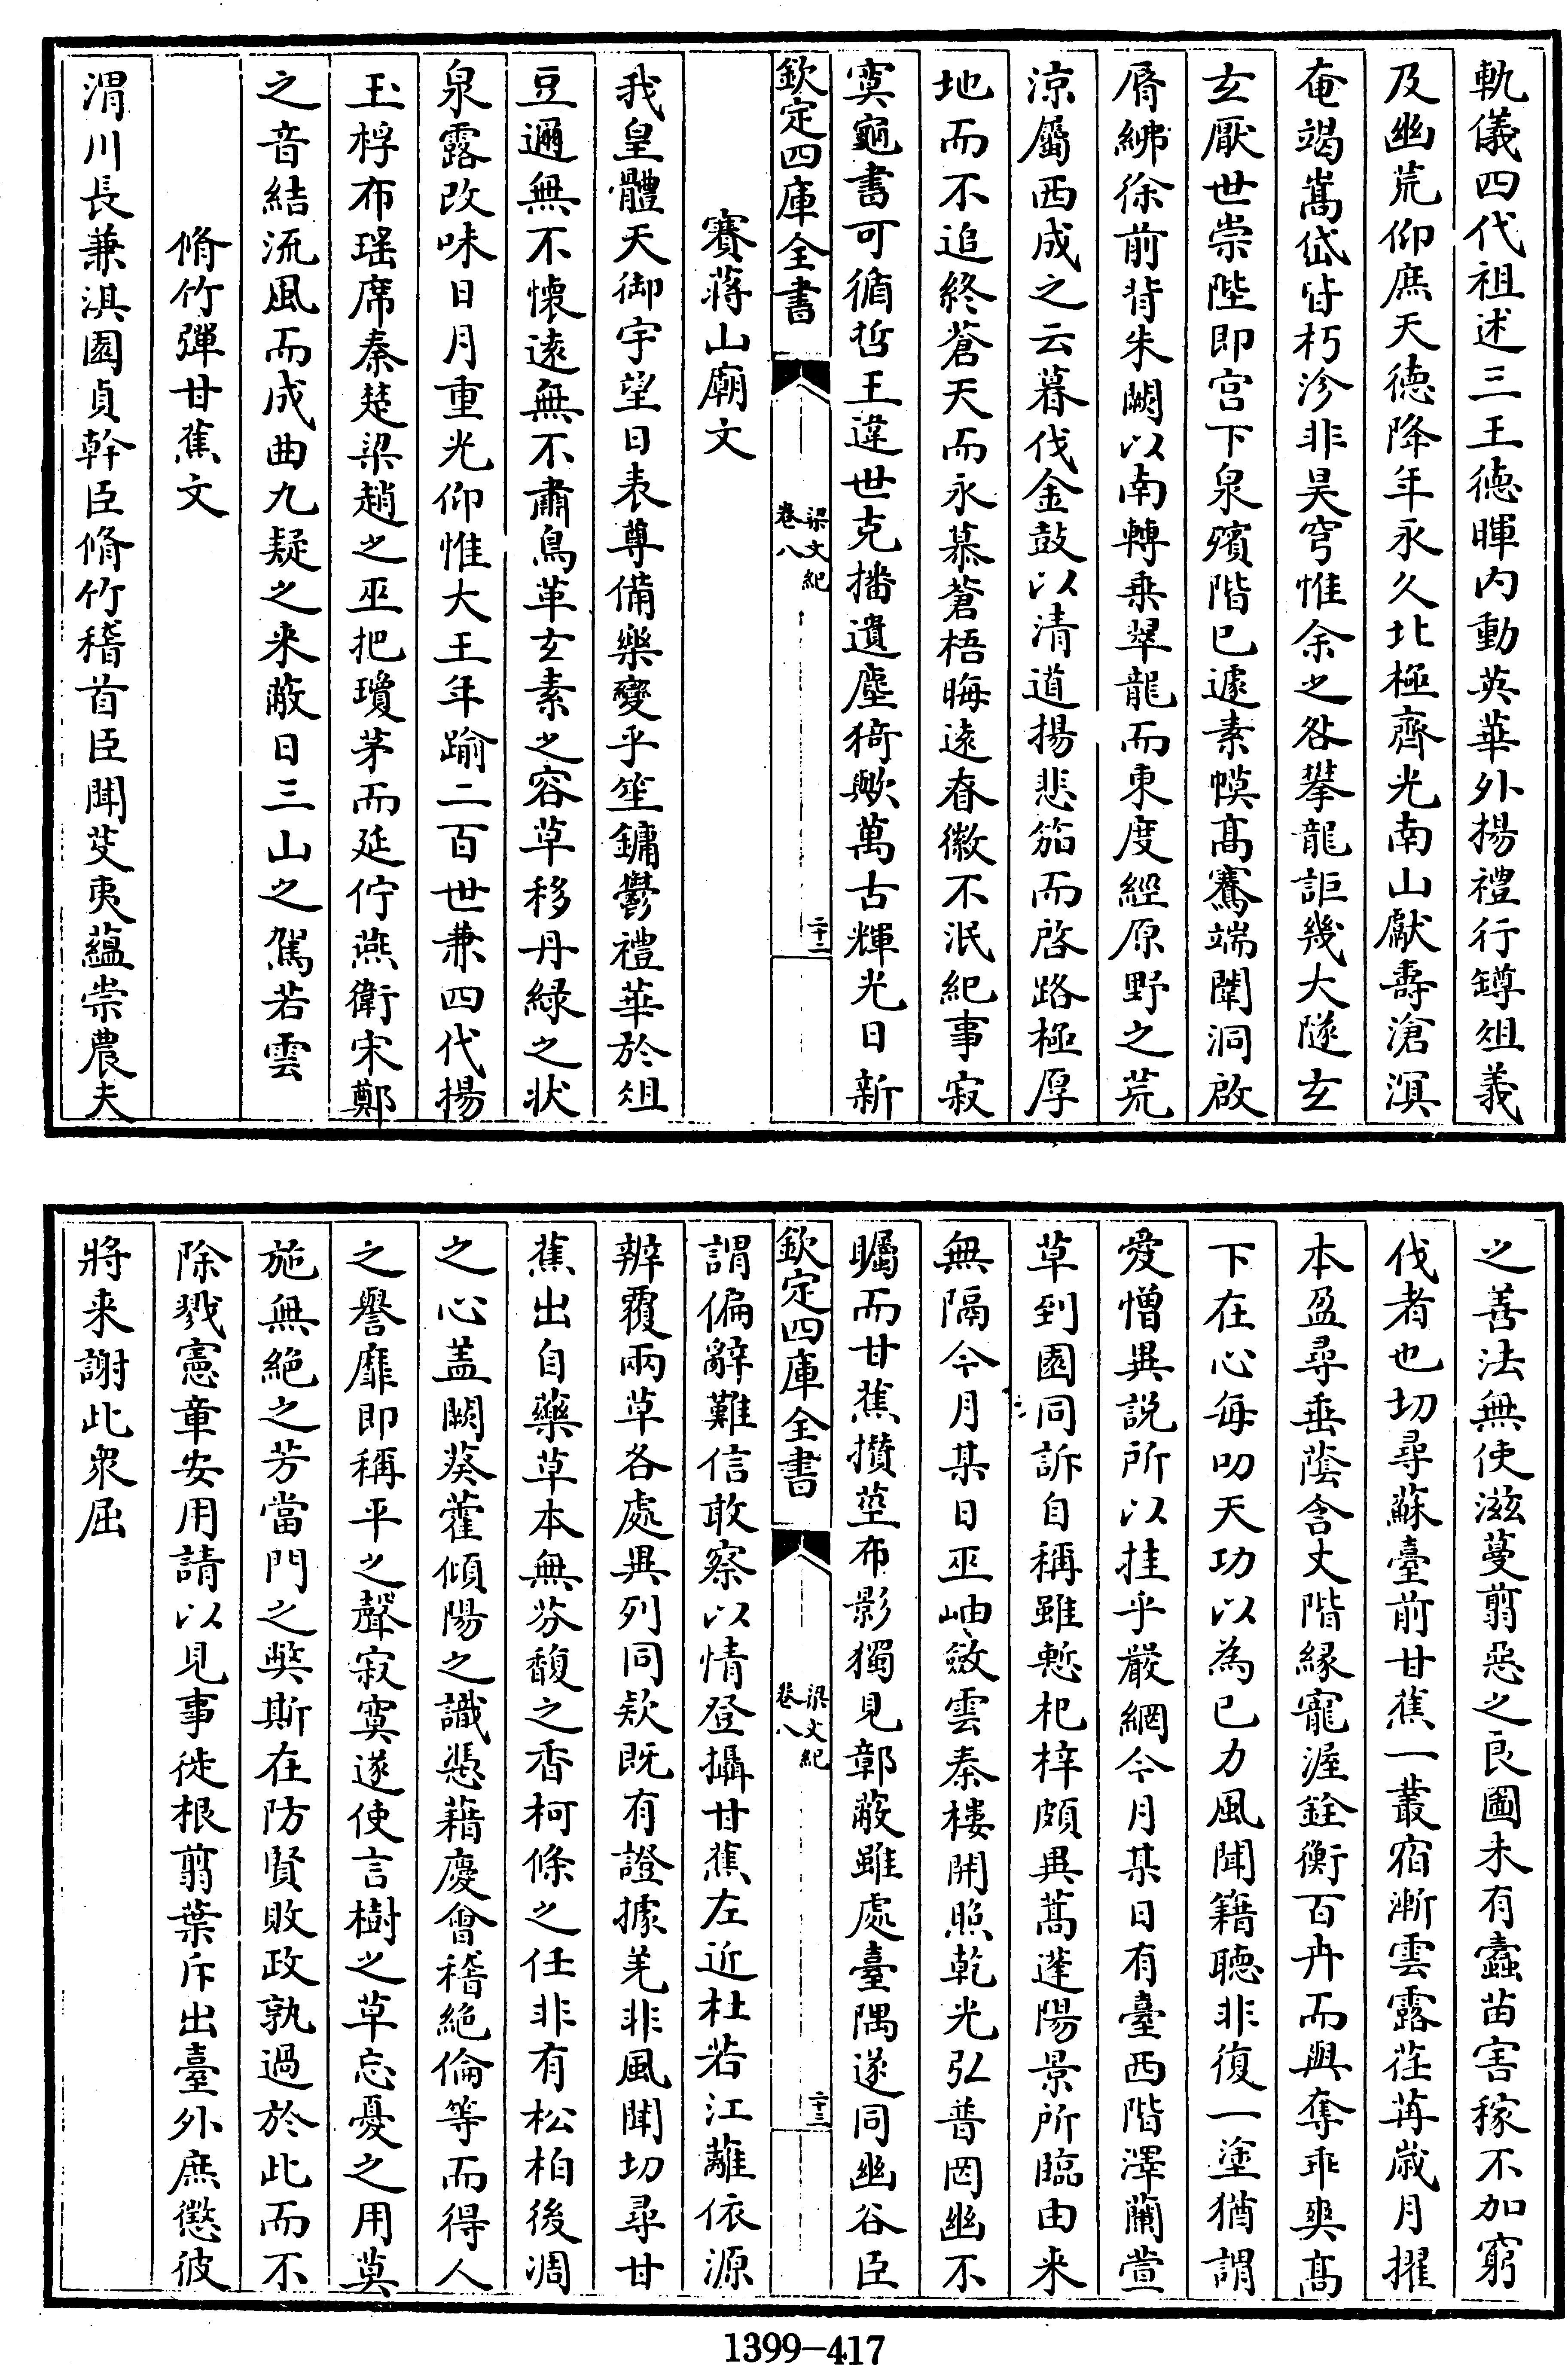 軌儀四代祖述三王德暉内動英華外揚禮行罇俎義
及幽荒仰庶天德降年永久北極齊光南山獻壽滄溟
奄竭嵩岱皆朽沴非昊穹惟余之咎攀龍詎幾大隧玄
玄厭世崇陛即宫下泉殯階已遽素幙髙騫端闈洞啟
脣紼徐前背朱闕以南轉乗翠龍而東度經原野之荒
涼屬西成之云暮伐金鼓以清道揚悲笳而啓路極厚
地而不追終蒼天而永慕蒼梧晦遠舂徽不泯紀事寂
寞龜書可循哲王違世克播遺塵猗歟萬古輝光日新
欽定四庫全書
梁文紀
卷八
二十二
賽蔣山廟文
我皇體天御宇望日表尊備樂變乎笙鏞鬱禮華於俎
豆邇無不懷逺無不肅鳥革玄素之容草移丹緑之狀
泉露改味日月重光仰惟大王年踰二百世兼四代揚
玉桴布瑶席秦楚梁趙之巫把瓊茅而延佇燕衛宋鄭
之音結流風而成曲九疑之来蔽日三山之駕若雲
脩竹彈甘蕉文
渭川長兼淇園貞幹臣脩竹稽首臣聞芟夷藴崇農夫
之善法無使滋蔓翦惡之良圖未有蠧苗害稼不加窮
伐者也切尋蘇臺前甘蕉一叢宿漸雲露荏苒歲月擢
本盈尋垂蔭含丈階縁寵渥銓衡百卉而與奪乖爽髙
下在心每叨天功以為已力風聞籍聽非復一塗猶謂
愛憎異説所以挂乎嚴網今月某日有臺西階澤蘭萱
草到園同訴自稱雖慙杞梓頗異蒿蓬陽景所臨由来
無隔今月某日巫岫斂雲秦樓開照乾光弘普罔幽不
矚而甘蕉攢莖布影獨見鄣蔽雖處臺隅遂同幽谷臣
欽定四庫全書
梁文紀
卷八
二十三
謂偏辭難信敢察以情登攝甘蕉左近杜若江蘺依源
辨覆兩草各處異列同欵既有證據羌非風聞切尋甘
蕉出自藥草本無芬馥之香柯條之任非有松柏後凋
之心盖闕葵藿傾陽之識憑藉慶會稽絶倫等而得人
之譽靡即稱平之聲寂寞遂使言樹之草忘憂之用莫
施無絶之芳當門之弊斯在防賢敗政孰過於此而不
除戮憲章安用請以見事徙根翦葉斥出臺外庶懲彼
將来謝此衆屈
1399-417